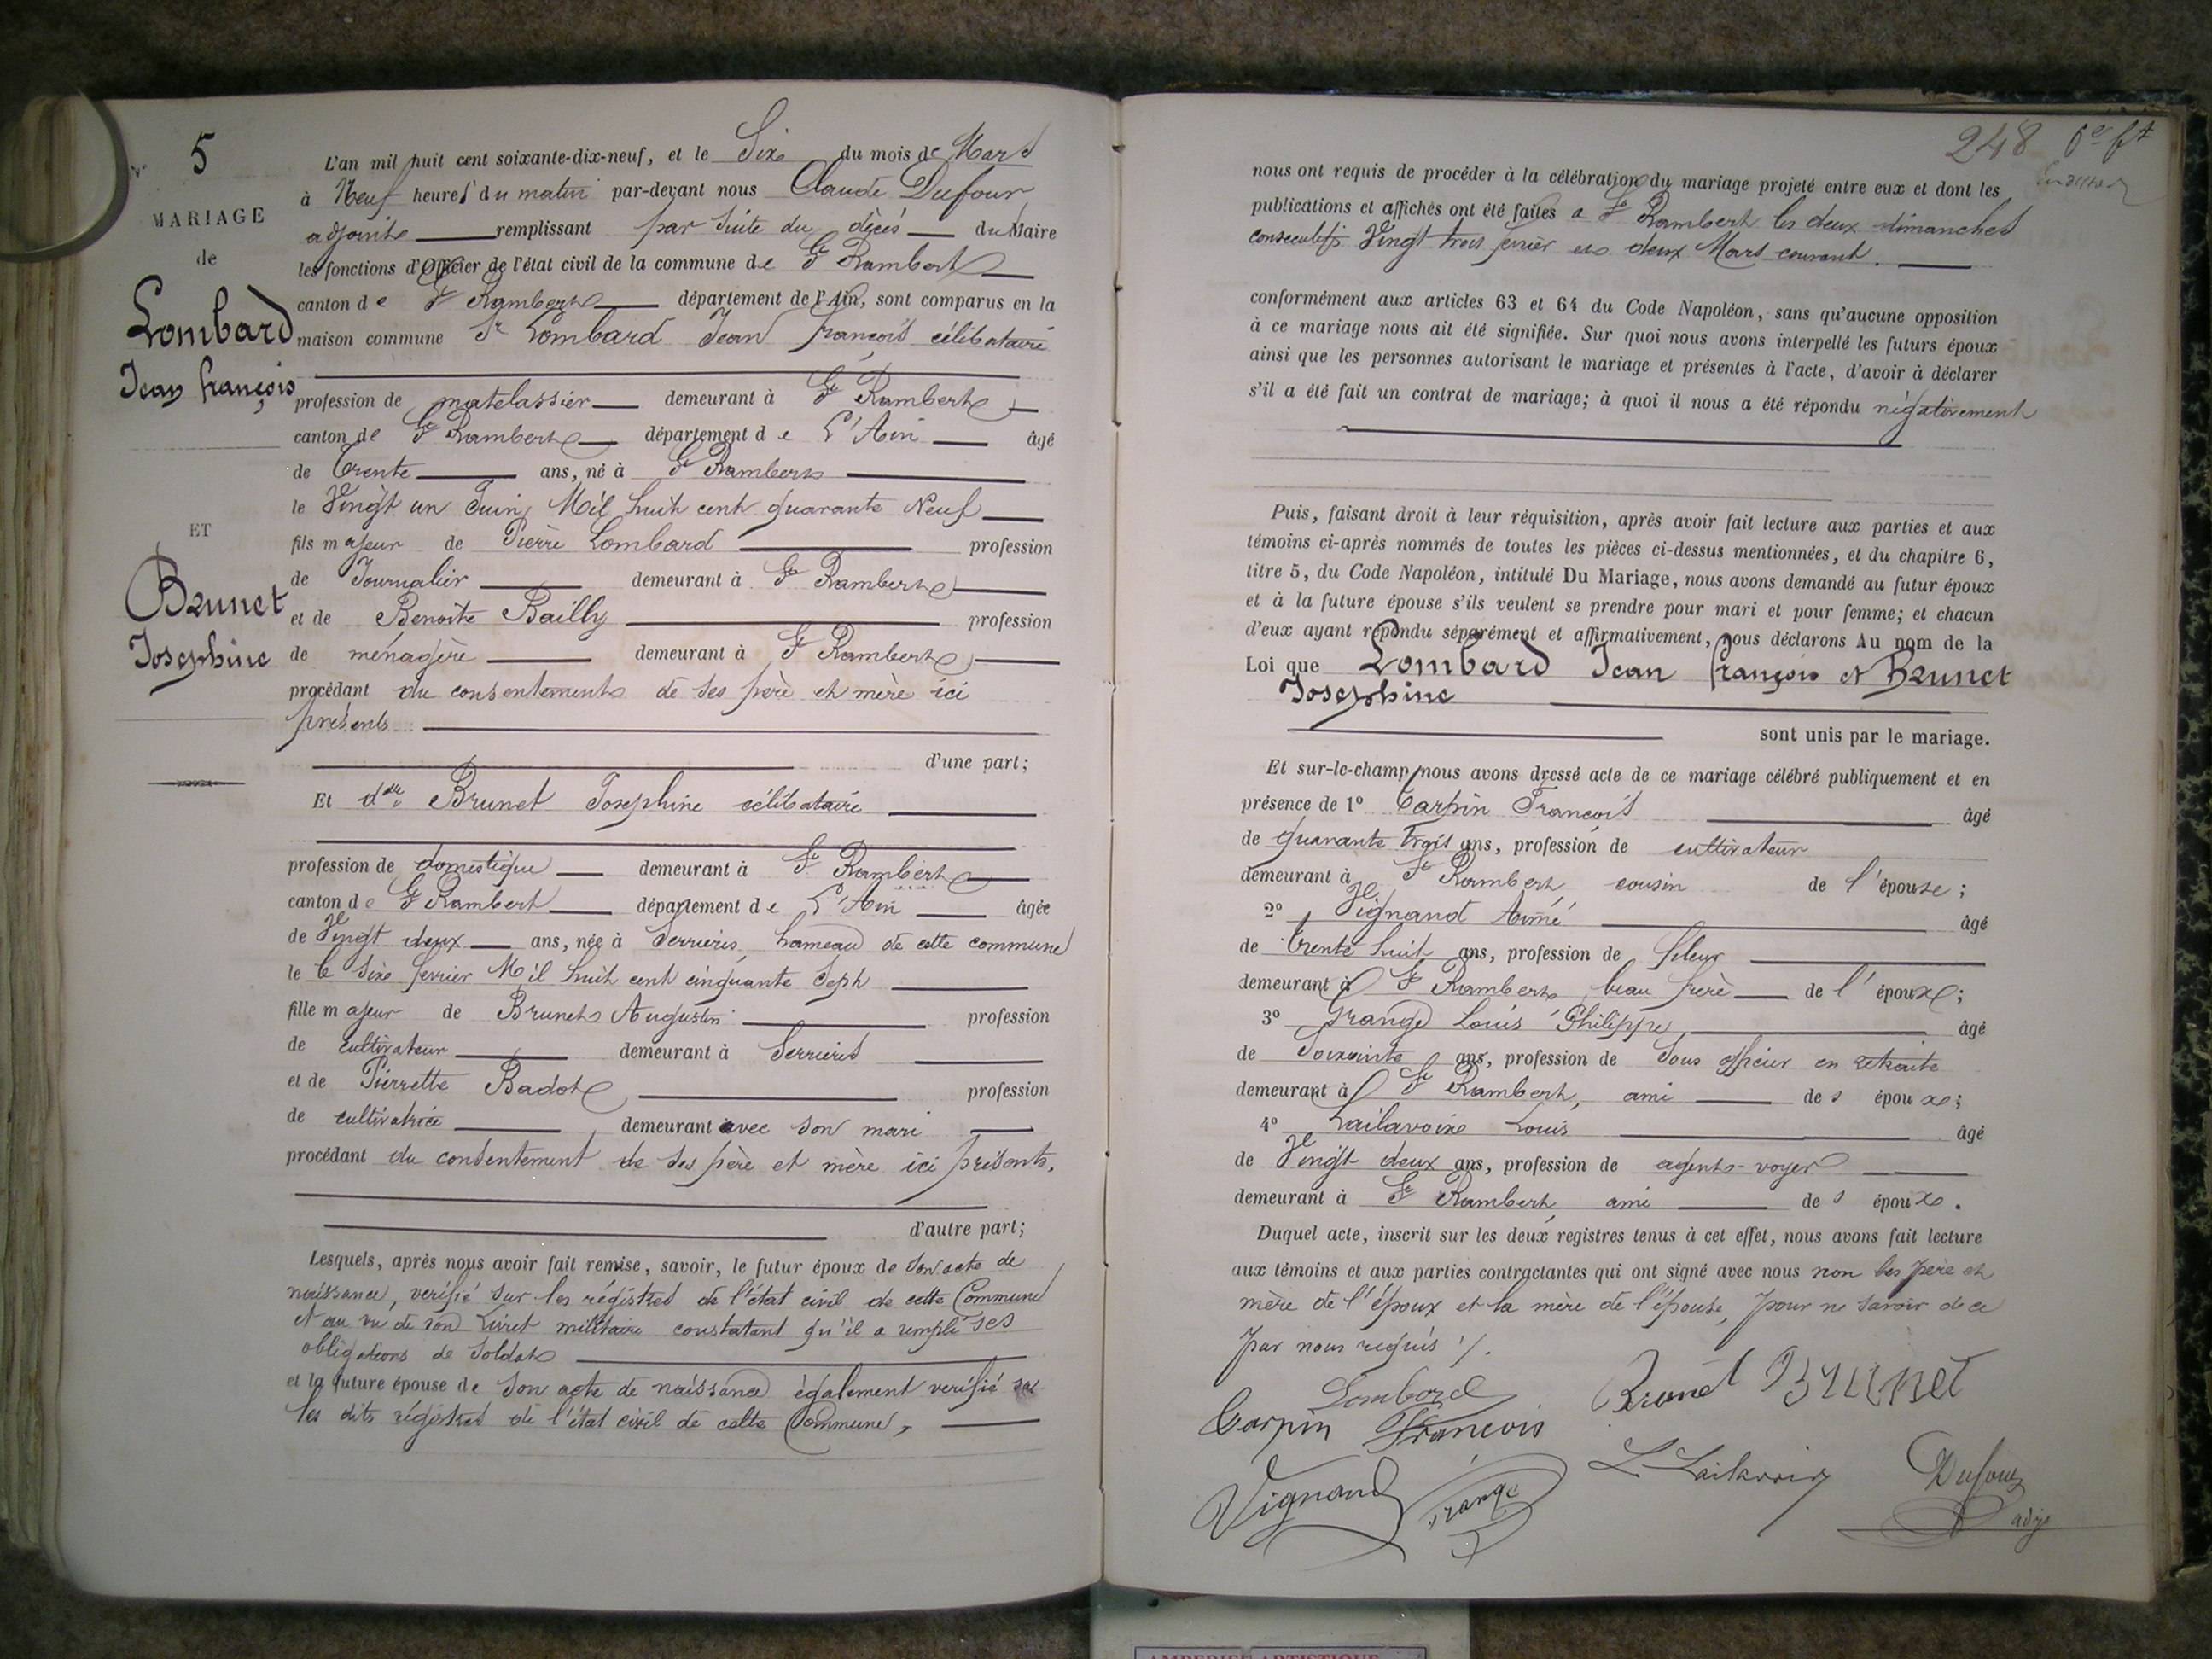 5
MARIAGE
de
Lombard
Jean françois
ET
Brunet
Josephine
L'an mil huit cent soixante-dix-neuf, et le Six du mois de Mars
à Neuf heures du matin par-devant nous Claude Dufour
adjoint remplissant par suite du décés du Maire
les fonctions d'officier de l'état civil de la commune de St Rambert
canton de St Rambert département de l'Ain, sont comparus en la
maison commune Sr Lombard Jean françois célibataire
profession de matelassier demeurant à St Rambert
canton de St Rambert département de L'Ain âgé
de trente ans, né à St Rambert
le Vingt un Juin Mil huit cent quarante Neuf
fils majeur de Pierre Lombard profession
de Journalier demeurant à St Rambert
et de Benoite Bailly profession
de ménagère demeurant à St Rambert
procédant du consentement de ses père et mère ici
présents
d'une part;
Et dlle Brunet Josephine célibataire
profession de domestique demeurant à St Rambert
canton de St Rambert département de L'Ain âgée
de Vingt deux ans, née à Serrieres, hameau de cette commune
le le Six fevrier Mil huit cent cinquante Sept
fille majeur de Brunet Augustin profession
de cultivateur demeurant à Serrieres
et de Pierrette Badot profession
de cultivatrice demeurant avec son mari
procédant du consentement de ses père et mère ici présents,
d'autre part;
Lesquels, après nous avoir fait remise, savoir, le futur époux de son acte de
naissance, verifié sur les régistres de l'état civil de cette Commune
et au vu de son Livret militaire constatant qu'il a rempli ses
obligations de Soldat
et la future épouse de son acte de naissance également verifié sur
les dits régistres de l'état civil de cette Commune,
248
nous ont requis de procéder à la célébration du mariage projeté entre eux et dont les
publications et affiches ont été faites a St Rambert les deux dimanches
consecutifs Vingt trois fevrier et deux Mars courant.
conformément aux articles 63 et 64 du Code Napoléon, sans qu'aucune opposition
à ce mariage nous ait été signifiée. Sur quoi nous avons interpellé les futurs époux
ainsi que les personnes autorisant le mariage et présentes à l'acte, d'avoir à déclarer
s'il a été fait un contrat de mariage; à quoi il nous a été répondu négativement
Puis, faisant droit à leur réquisition, après avoir fait lecture aux parties et aux
témoins ci-après nommés de toutes les pièces ci-dessus mentionnées, et du chapitre 6,
titre 5, du Code Napoléon, intitulé Du Mariage, nous avons demandé au futur époux
et à la future épouse s'ils veulent se prendre pour mari et pour femme; et chacun
d'eux ayant répondu séparément et affirmativement, nous déclarons Au nom de la
Loi que Lombard Jean françois et Brunet
Josephine
sont unis par le mariage.
Et sur-le-champ nous avons dressé acte de ce mariage célébré publiquement et en
présence de 1° Carpin François âgé
de quarante trois ans, profession de cultivateur
demeurant à St Rambert, cousin de l'épouse;
2° Vignand Aimé âgé
de trente huit ans, profession de fileur
demeurant à St Rambert, beau frère de l'époux;
3° Grange Louis Philippe âgé
de Soixante ans, profession de Sous officier en retraite
demeurant à St Rambert, ami des époux;
4° Lailavoix Louis âgé
de Vingt deux ans, profession de agent-voyer
demeurant à St Rambert, ami des époux.
Duquel acte, inscrit sur les deux registres tenus à cet effet, nous avons fait lecture
aux témoins et aux parties contractantes qui ont signé avec nous non les père et
mère de l'époux et la mère de l'épouse, pour ne savoir de ce
par nous requis ./.
Lombard Brunet Brunet
Carpin François
Vignand Grange L. Lailavoix Dufour
adj
AMBERIEU ARTISTIQUE